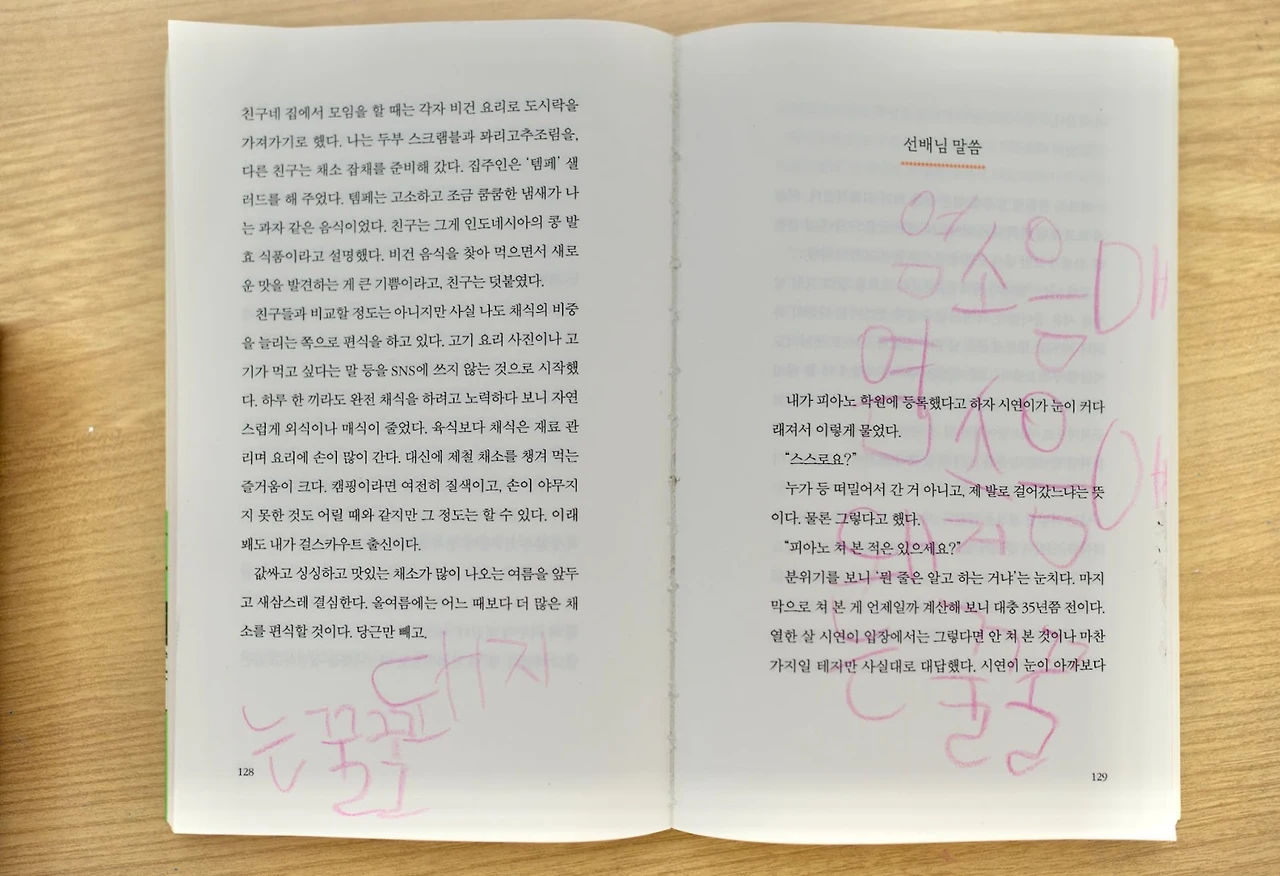 친구네 집에서 모임을 할 때는 각자 비건 요리로 도시락을
가져가기로 했다. 나는 두부 스크램블과 꽈리고추조림을,
다른 친구는 채소 잡채를 준비해 갔다. 집주인은 ‘템페’ 샐
러드를 해 주었다. 템페는 고소하고 조금 쿰쿰한 냄새가 나
는 과자 같은 음식이었다. 친구는 그게 인도네시아의 콩 발
효 식품이라고 설명했다. 비건 음식을 찾아 먹으면서 새로
운 맛을 발견하는 게 큰 기쁨이라고, 친구는 덧붙였다.
친구들과 비교할 정도는 아니지만 사실 나도 채식의 비중
을 늘리는 쪽으로 편식을 하고 있다. 고기 요리 사진이나 고
기가 먹고 싶다는 말 등을 SNS에 쓰지 않는 것으로 시작했
다. 하루 한 끼라도 완전 채식을 하려고 노력하다 보니 자연
스럽게 외식이나 매식이 줄었다. 육식보다 채식은 재료 관
리며 요리에 손이 많이 간다. 대신에 제철 채소를 챙겨 먹는
즐거움이 크다. 캠핑이라면 여전히 질색이고, 손이 야무지
지 못한 것도 어릴 때와 같지만 그 정도는 할 수 있다. 이래
봬도 내가 걸스카우트 출신이다.
값싸고 싱싱하고 맛있는 채소가 많이 나오는 여름을 앞두
고 새삼스레 결심한다. 올여름에는 어느 때보다 더 많은 채
소를 편식할 것이다. 당근만 빼고.
돼지
는 꿀꿀
128
선배님 말씀
염소음매
염소음매
돼지
내가 피아노 학원에 등록했다고 하자 시연이가 눈이 커다
래져서 이렇게 물었다.
“스스로요?”
누가 등 떠밀어서 간 거 아니고, 제 발로 걸어갔느냐는 뜻
이다. 물론 그렇다고 했다.
“피아노 쳐 본 적은 있으세요?”
분위기를 보니 ‘뭔 줄은 알고 하는 거냐’는 눈치다. 마지
막으로 쳐 본 게 언제일까 계산해 보니 대충 35년쯤 전이다.
열한 살 시연이 입장에서는 그렇다면 안 쳐 본 것이나 마찬
가지일 테지만 사실대로 대답했다. 시연이 눈이 아까보다
는 꿀꿀
129